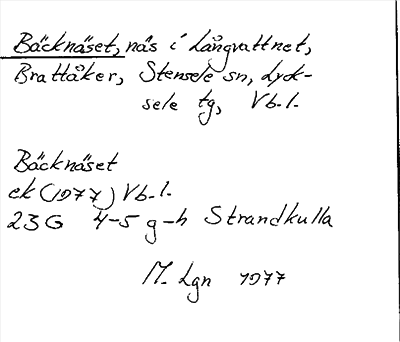 Bäcknäset, näs i Långvattnet,
Brattåker, Stensele sn, Lyck-
sele tg, Vb.l.
Bäcknäset
ek (1977) Vb.l.
23G 4-5 g-h Strandkulla
M. Lgn 1977